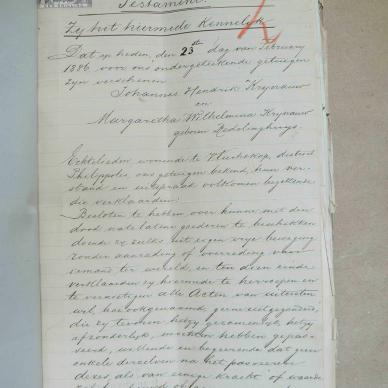 Testament.
Zij hit hiermede Kennelijk
Dat op heden, den 23ste dag van Februarij
1886, voor ons ondergeteekende getuigen
zijn verschenen
Johannes Hendrik Krynauw
en
Margaretha Wilhelmina Krynauw
geboren Redelinghuys.
Echtelieden woonende te Vlucht­kop, district
Philippolis, ons getuigen bekend, hun ver-
stand en uitspraak volkomen bezittende
die verklaarden:
Besloten te hebben over hunne met den
dood natelaten goederen te beschikken
doende zij zulks uit eigen vrije beweging
zonder aanrading of overreding van
iemand ter wereld, en ten dien einde
verklaarden zij hiermede te herroepen en
te vernietigen alle Acten van uitersten
wil, hier
die zij te voren hetzij gezamenlijk, hetzij
afzonderlijk, mochten hebben gepas-
seerd, willende en begeerende dat geen
enkele derzelven na het passeeren
dezes, als van eenige kracht of waarde